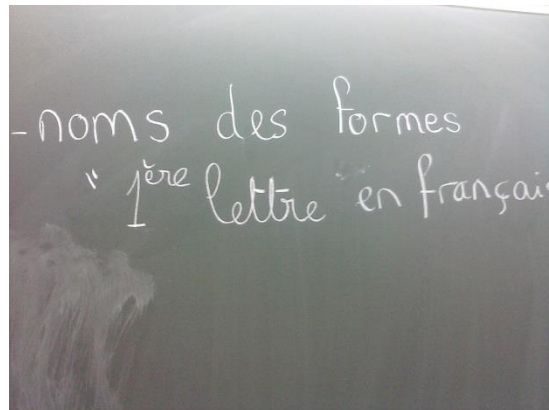 - noms des formes
" 1ère lettre " en françai